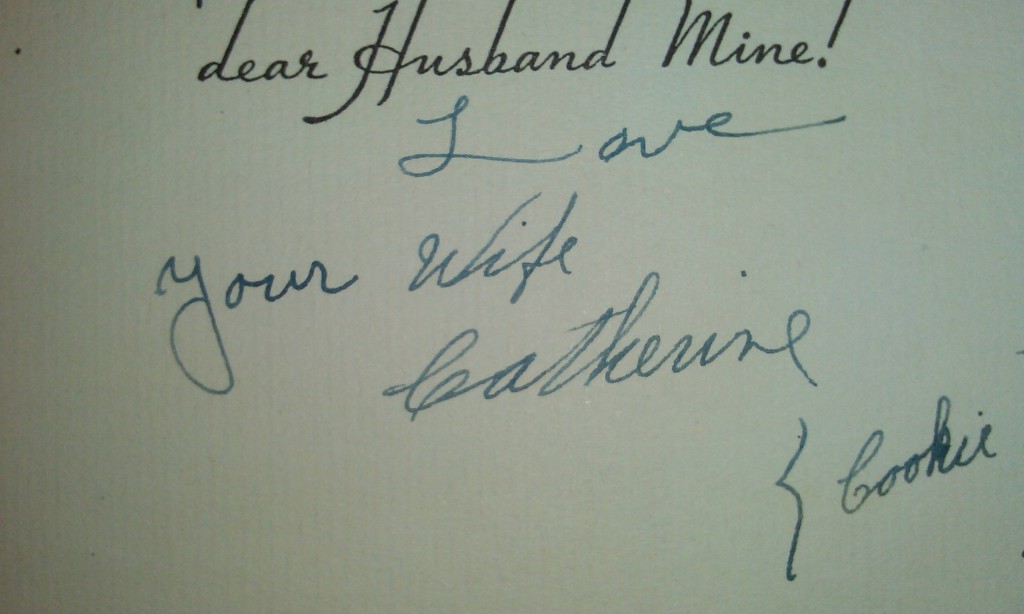 dear Husband Mine!
Love
Your Wife
Catherine
{ Cookie